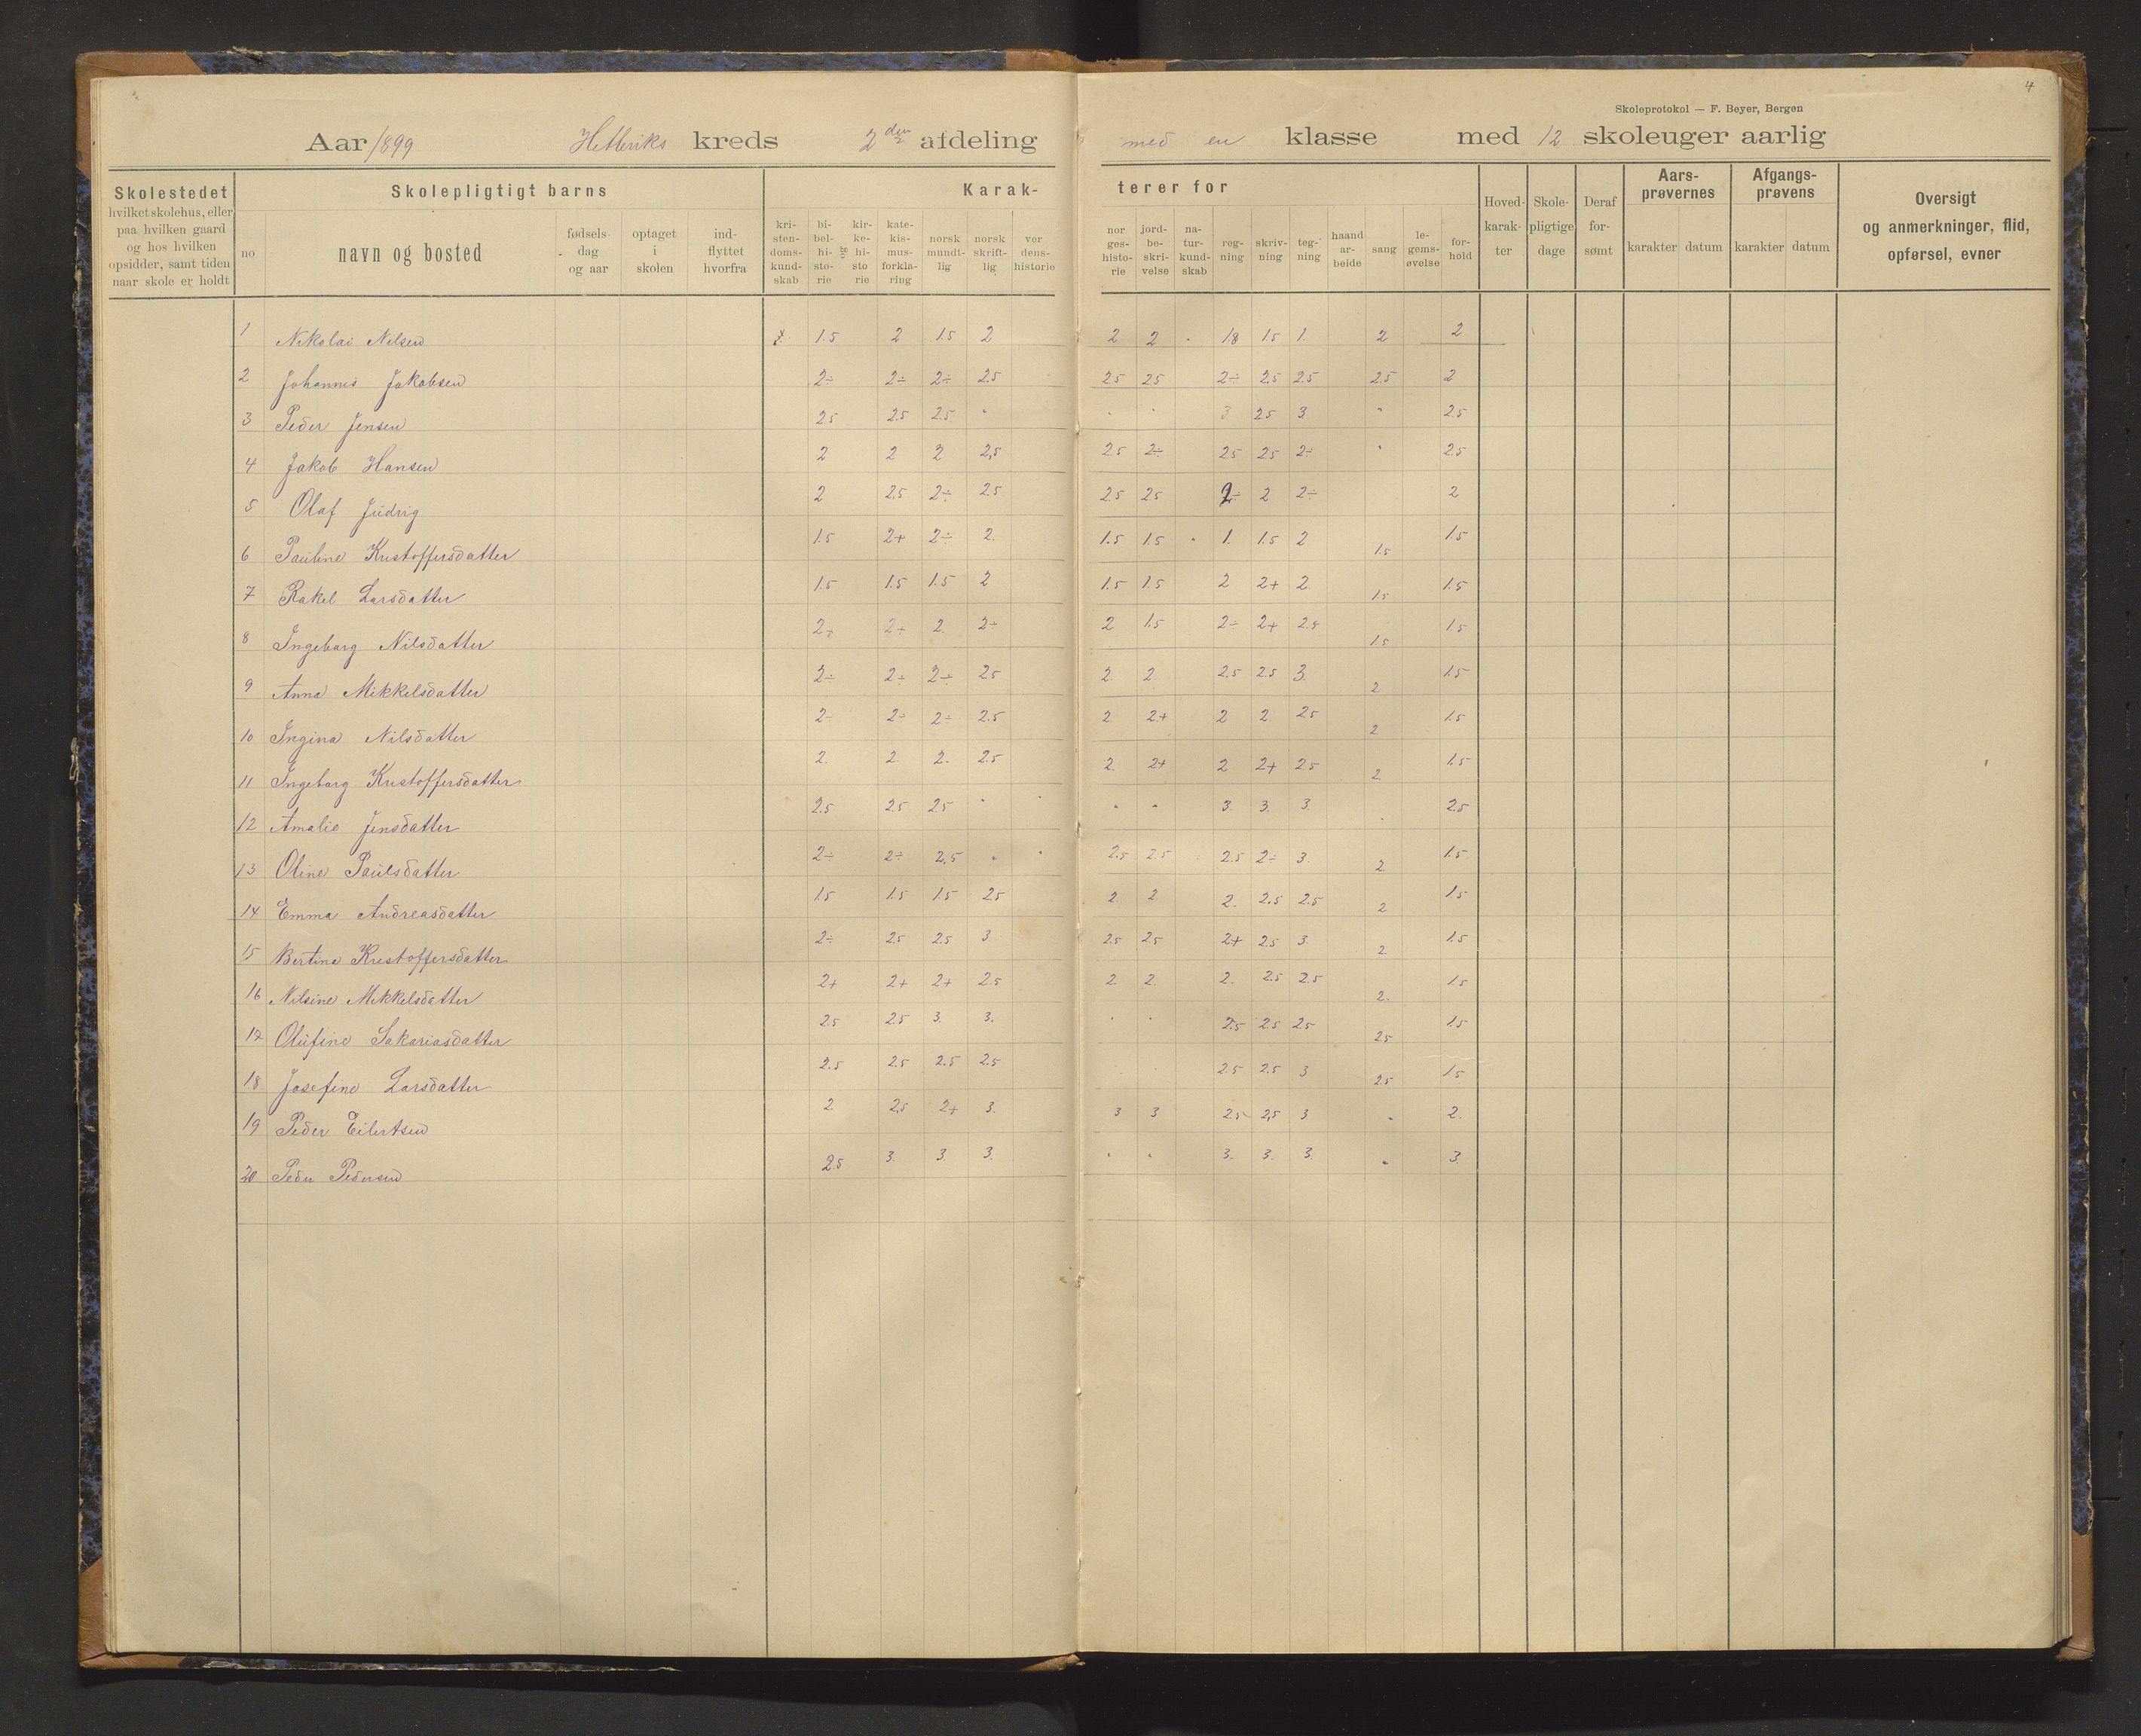 4
Skoleprotokol — F. Beyer, Bergen
Aar 1899 kreds 2den afdeling med en klasse med 12 skoleuger aarlig
Skolestedet hvilket skolehus, eller paa hvilken gaard og hos hvilken opsidder, samt tiden naar skole er holdt
Skolepligtigt barns
no navn og bosted fødsels-dag og aar optaget i skolen ind-flyttet hvorfra
Karak- terer for
kri-sten-doms-kund-skab bi-bel-hi-sto-rie kir-ke-hi-sto rie kate-kis-mus-forkla-ring norsk mundt-lig norsk skrift-lig ver dens-historie nor ges-histo-rie jord-be-skri-velse na-tur-kund-skab reg-ning skriv-ning teg-ning haand ar-beide sang le-gems-øvelse for-hold
Hoved-karak-ter Skole-pligtige dage Deraf for-sømt
Aars-prøvernes karakter datum
Afgangs-prøvens karakter datum
Oversigt og anmerkninger, flid, opførsel, evner
1 Nikolai Nilsen 1.5 2 1.5 2 2 2 18 1.5 1. 2 2
2 Johannis Jakobsen 2÷ 2÷ 2÷ 2.5 2.5 2.5 2÷ 2.5 2.5 2.5 2
3 Peder Jensen 2.5 2.5 2.5 " " " 3 2.5 3. " 2.5
4 Jakob Hansen 2 2 2 2,5 2.5 2÷ 2.5 2.5 2÷ " 2.5
5 Olaf 2 2.5 2÷ 2.5 2.5 2.5 2÷ 2 2÷ 2
6 Pauline Kristoffersdatter 1.5 2+ 2÷ 2. 1.5 1.5 " 1. 1.5 2 1.5 1.5
7 Rakel Larsdatter 1.5 1.5 1.5 2 1.5 1.5 2 2+ 2 1.5 1.5
8 Ingeborg Nilsdatter 2+ 2÷ 2. 2÷ 2 1.5 2÷ 2+ 2.5 1.5 1.5
9 Anna Mikkelsdatter 2÷ 2÷ 2÷ 2.5 2. 2. 2.5 2.5 3. 2. 1.5
10 Ingina Nilsdatter 2÷ 2÷ 2÷ 2.5 2. 2+ 2 2. 2.5 2. 1.5
11 Ingeborg Kristoffersdatter 2. 2. 2. 2.5 2. 2+ 2 2+ 2.5 2. 1.5
12 Amalie Jensdatter 2.5 2.5 2.5 " " " 3. 3. 3. 2.5
13 Oline Paulsdatter 2÷ 2÷ 2.5 " 2.5 2.5 2.5 2÷ 3. 2. 1.5
14 Emma Andreasdatter 1.5 1.5 1.5 2.5 2 2 2. 2.5 2.5 2 1.5
15 Bertina Kristoffersdatter 2÷ 2.5 2.5 3 2.5 2.5 2+ 2.5 3. 2. 1.5
16 Nilsine Mikkelsdatter 2+ 2+ 2+ 2.5 2 2. 2. 2.5 2.5 2. 1.5
17 Olufine Sakariasdatter 2.5 2.5 3. 3. " " 2.5 2.5 2.5 2.5 1.5
18 Josefine Larsdatter 2.5 2.5 2.5 2.5 2.5 2.5 3 2.5 1.5
19 Peder Eilertsen 2. 2,5 2+ 3. 3 3 2.5 2,5 3. " 2.
20 Peder Pedersen 2.5 3. 3. 3. " " 3. 3. 3. " 3.